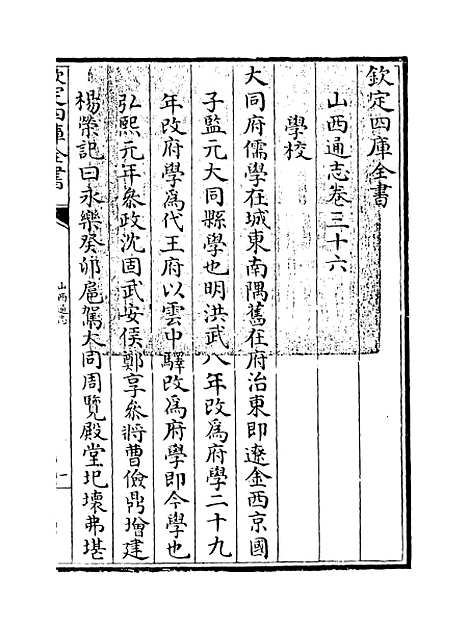 欽定四庫全書
山西通志卷三十六
學校
大同府儒學在城東南隅舊在府治東即遼金西京國
子監元大同縣學也明洪武八年改為府學二十九
年改府學為代王府以雲中驛改為府學即今學也
弘熙元年叅政沈固武安侯鄭享叅將曹儉鼎增建
楊榮記曰永樂癸卯扈駕大同周覽殿堂圮壞弗堪
欽定四庫全書
山西通志